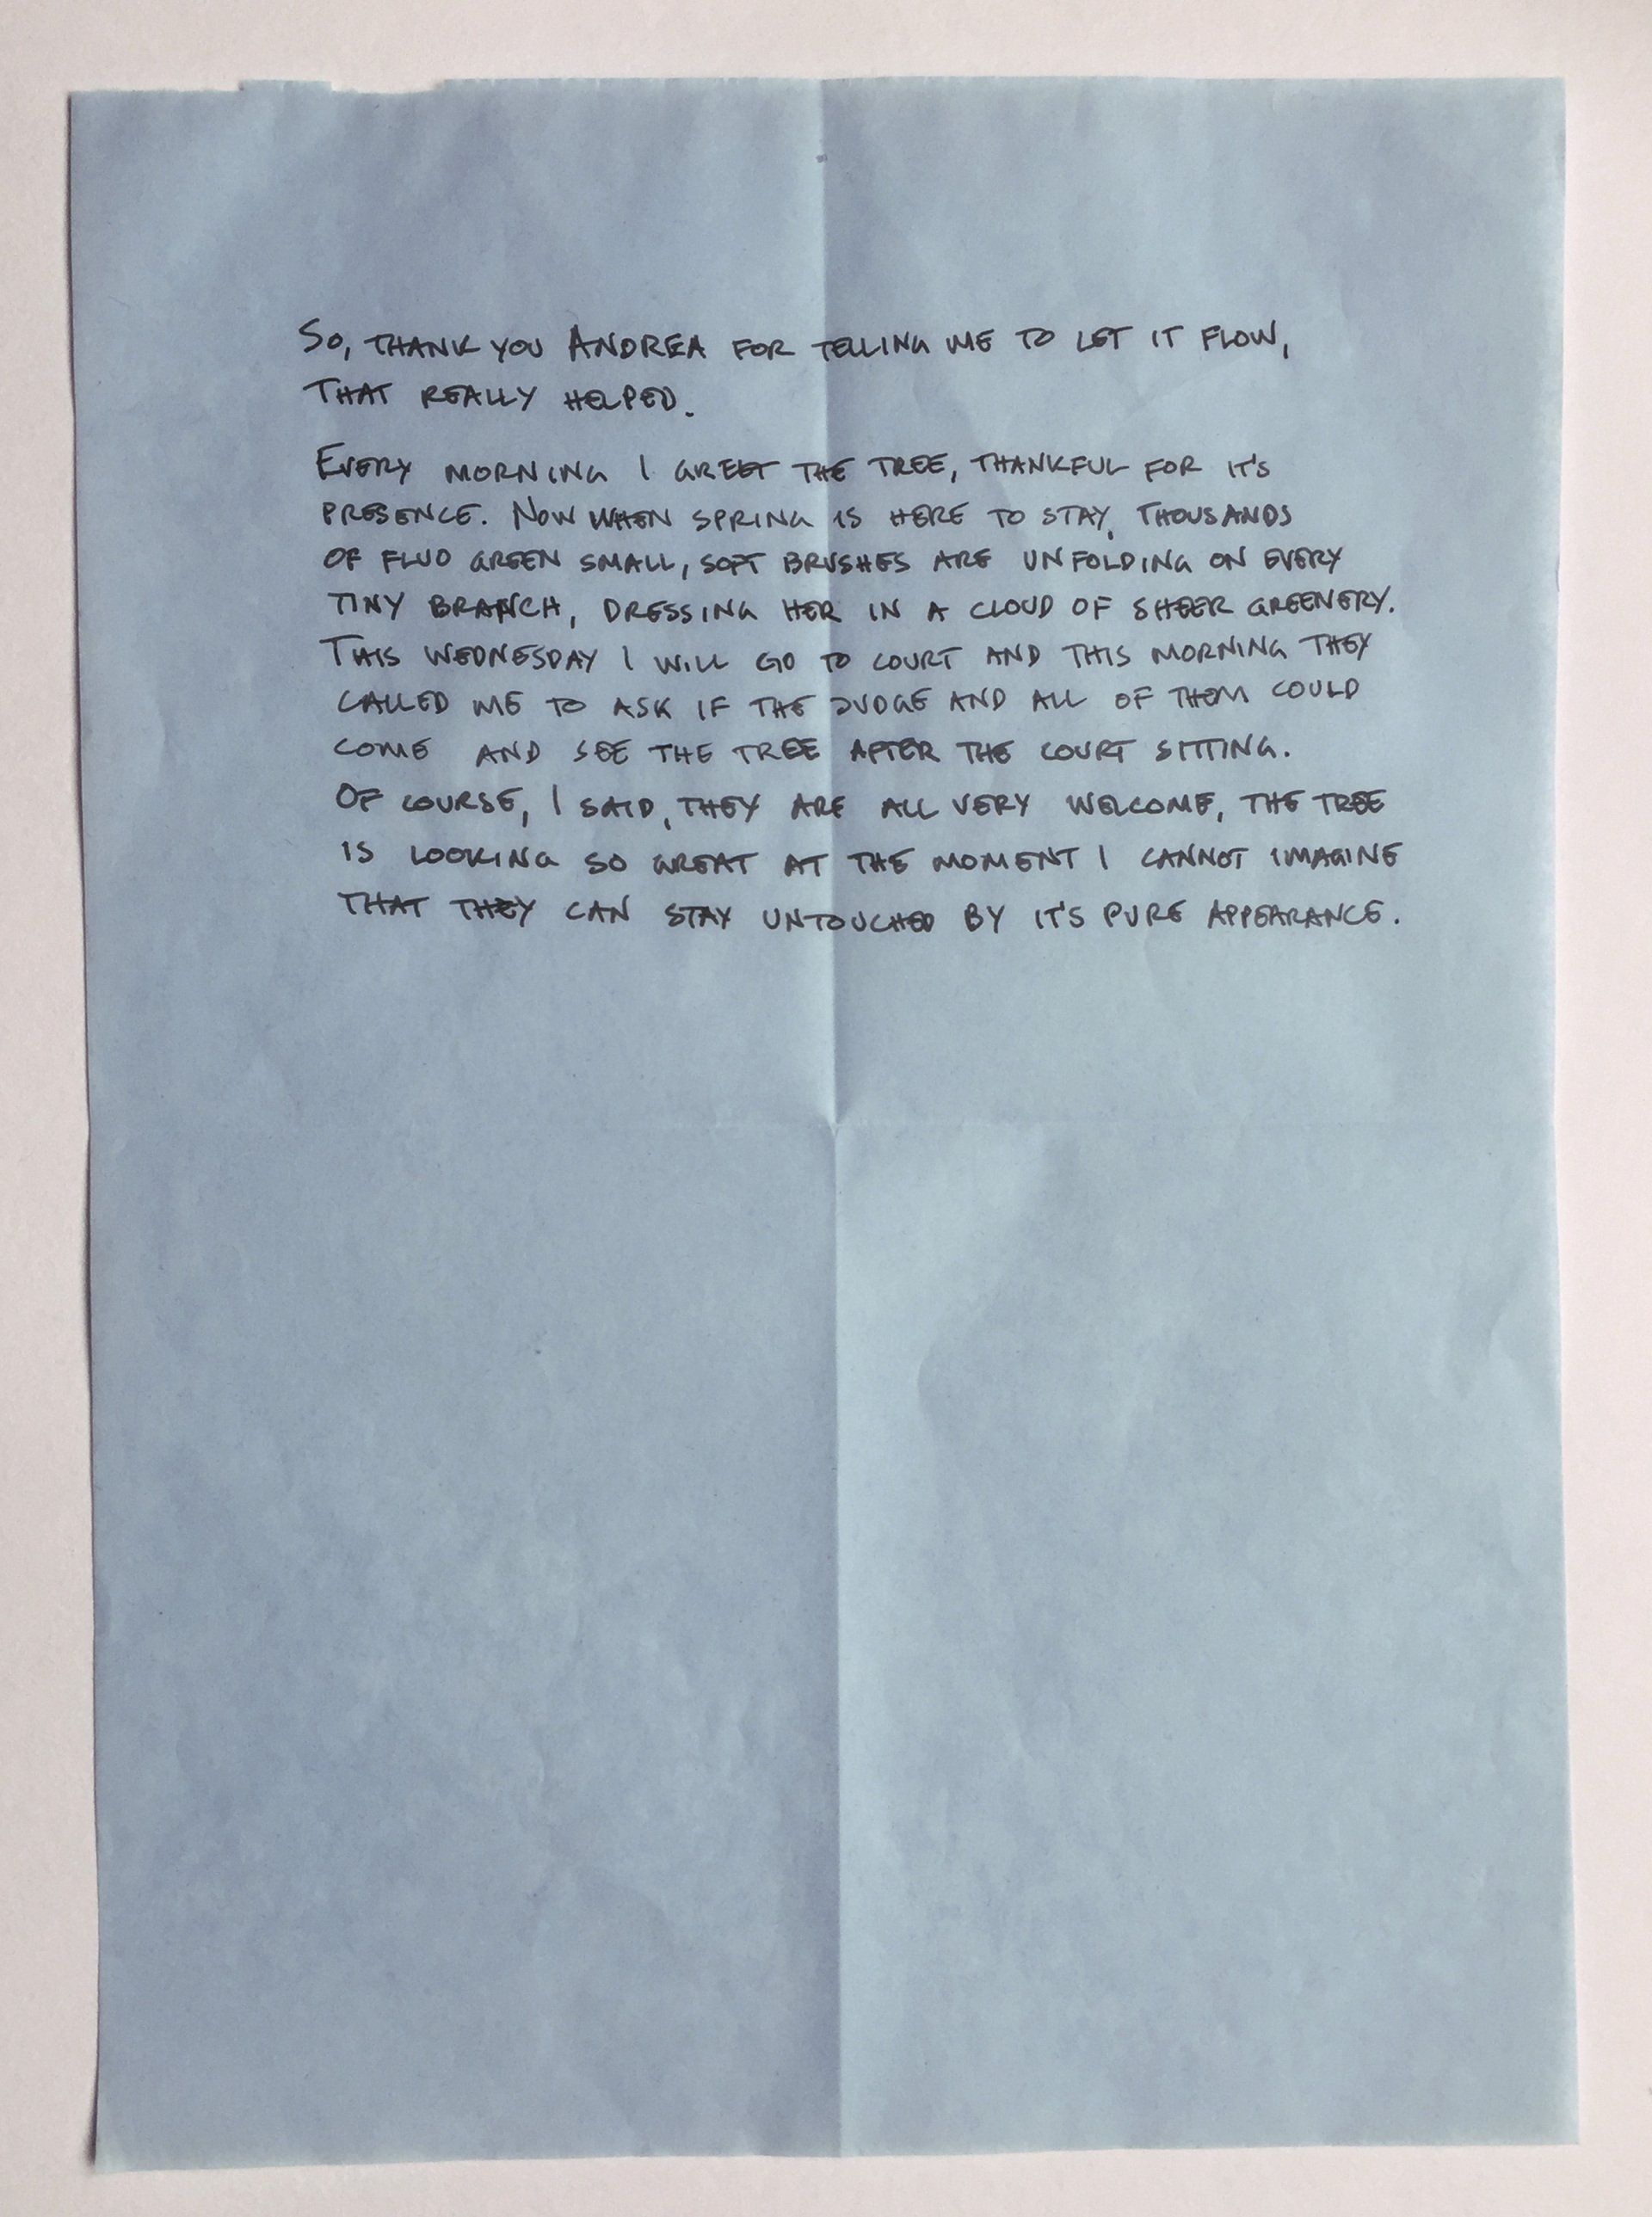 So, THANK YOU ANDREA FOR TELLING ME TO LET IT FLOW,
THAT REALLY HELPED.
EVERY MORNING I GREET THE TREE, THANKFUL FOR IT'S
PRESENCE. NOW WHEN SPRING IS HERE TO STAY, THOUSANDS
OF FLUO GREEN SMALL, SOFT BRUSHES ARE UNFOLDING ON EVERY
TINY BRANCH, DRESSING HER IN A CLOUD OF SHEER GREENERY.
THIS WEDNESDAY I WILL GO TO COURT AND THIS MORNING THEY
CALLED ME TO ASK IF THE JUDGE AND ALL OF THEM COULD
COME AND SEE THE TREE AFTER THE COURT SITTING.
OF COURSE, I SAID, THEY ARE ALL VERY WELCOME, THE TREE
IS LOOKING SO GREAT AT THE MOMENT I CANNOT IMAGINE
THAT THEY CAN STAY UNTOUCHED BY IT'S PURE APPEARANCE.